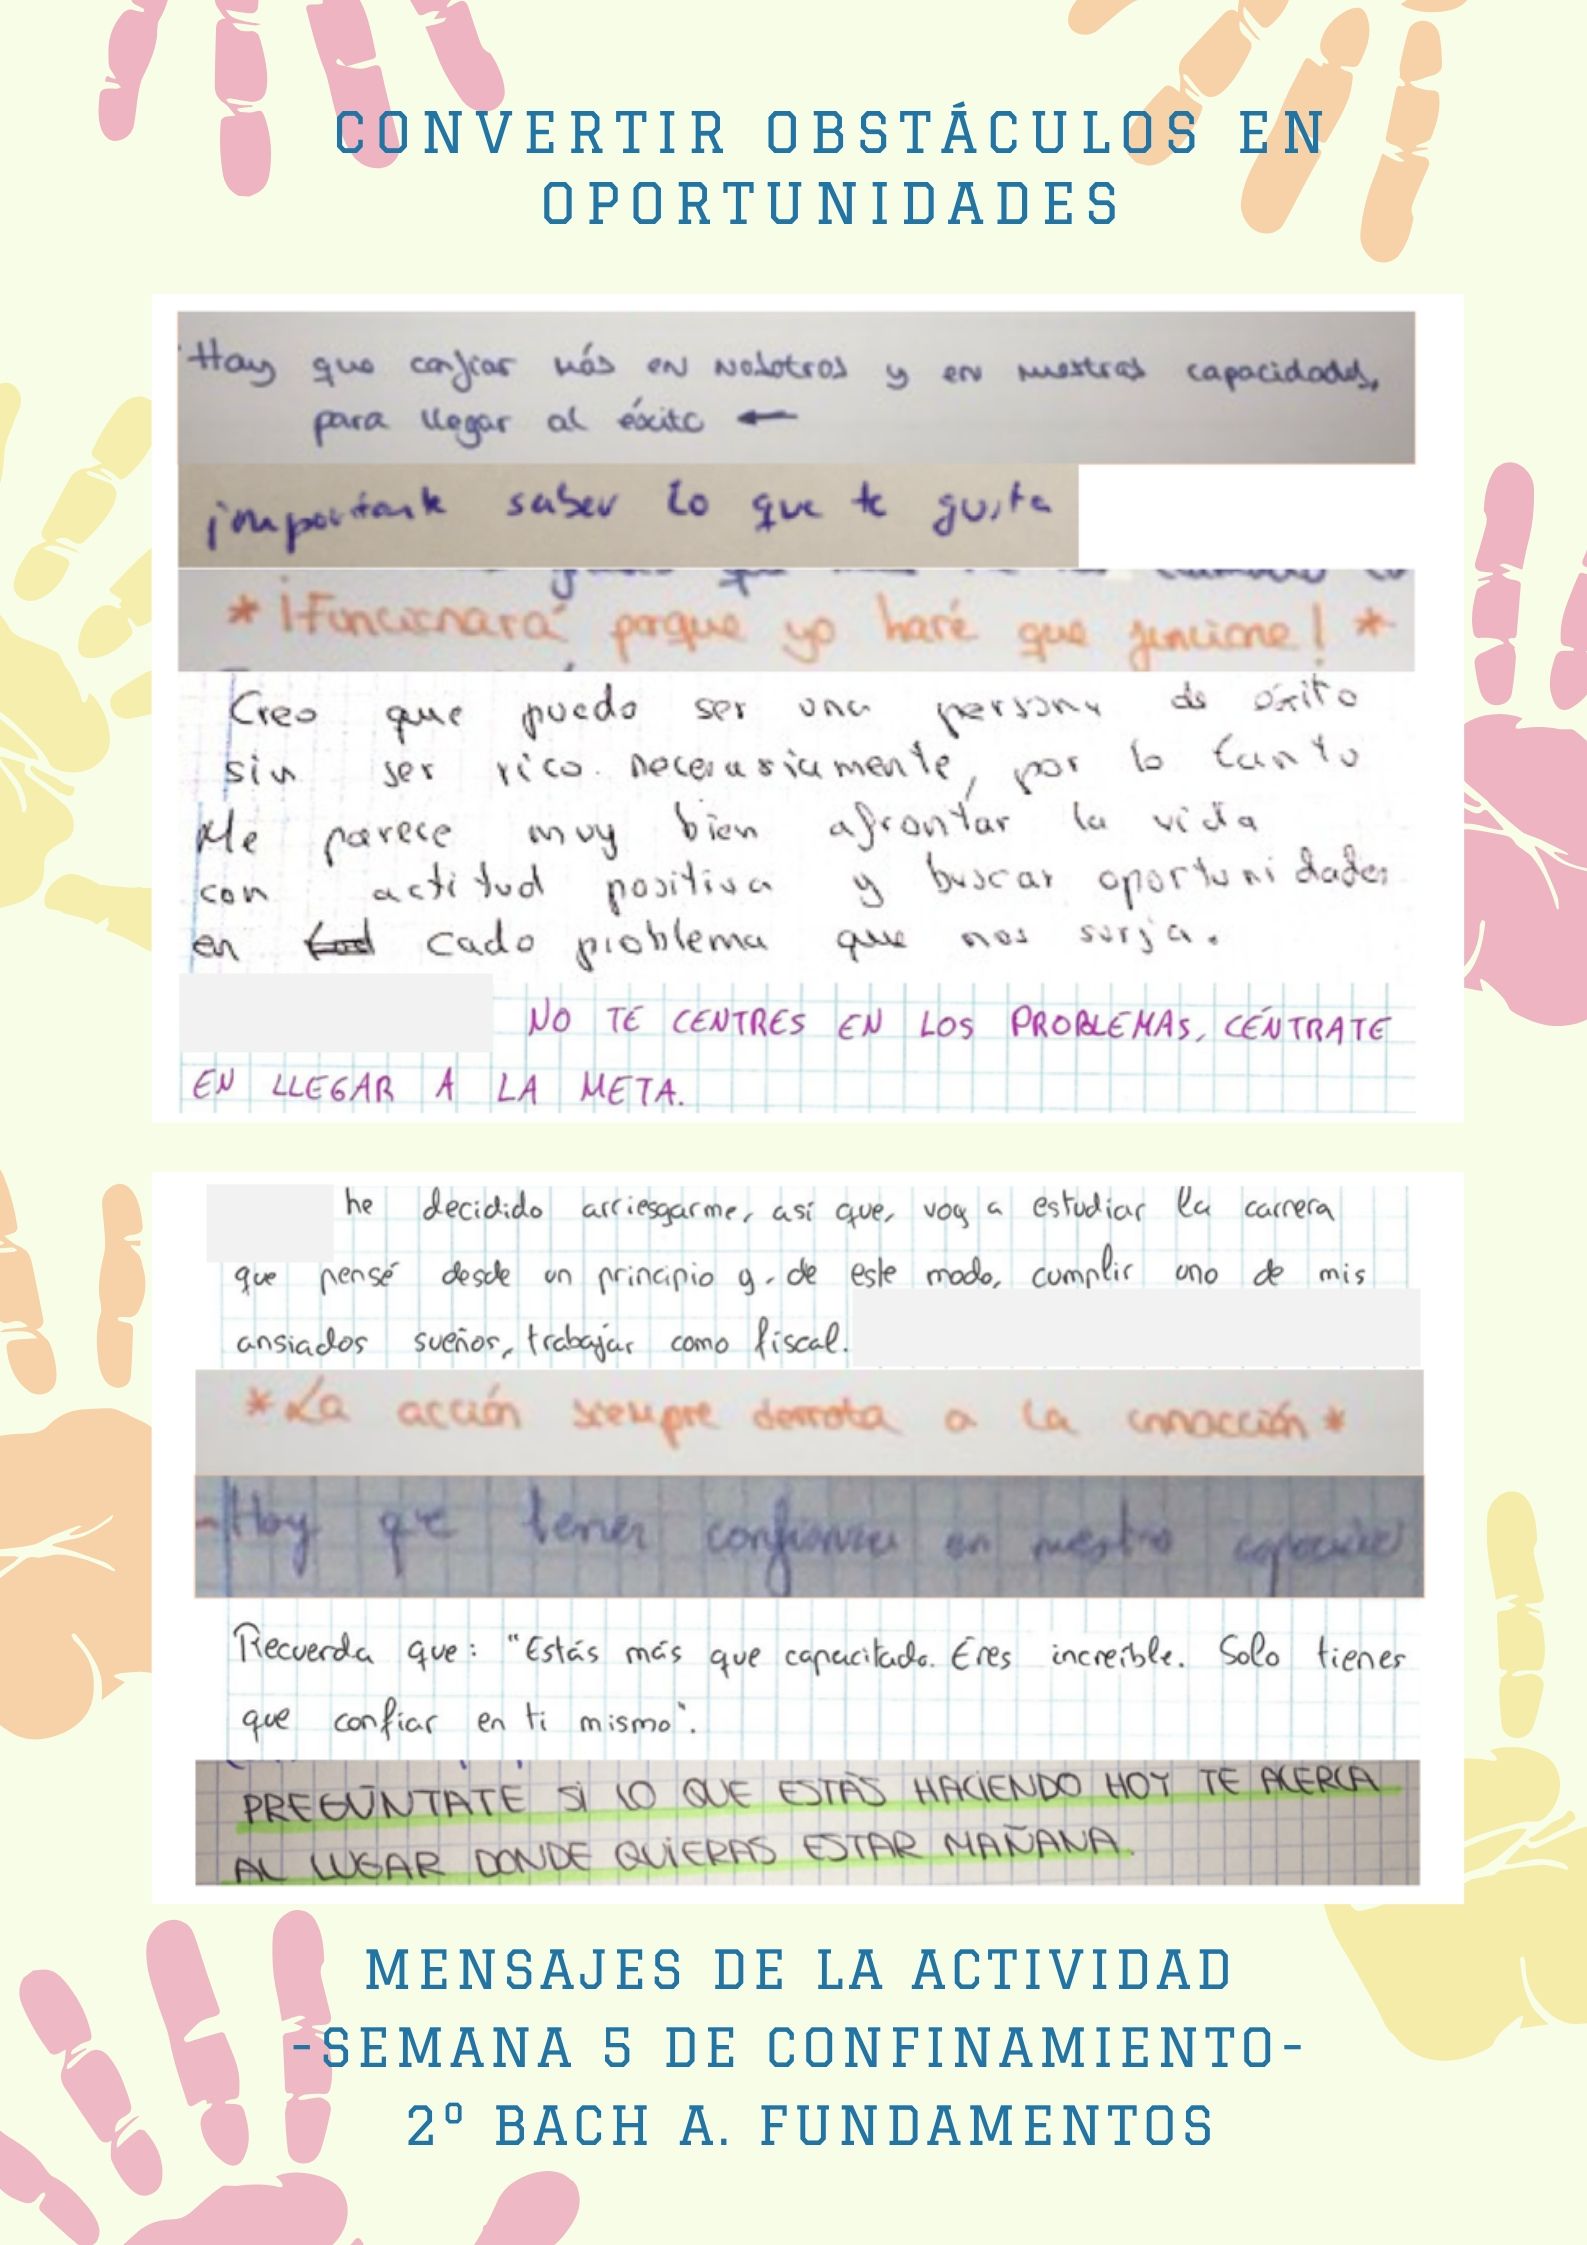 CONVERTIR OBSTÁCULOS EN
OPORTUNIDADES
Hay que confiar más en nosotros y en nuestras capacidades,
para llegar al éxito ←
importante saber lo que te gusta
* ¡Funcionará porque yo haré que funcione! *
Creo que puedo ser una persona de éxito
sin ser rico necesariamente, por lo tanto
Me parece muy bien afrontar la vida
con actitud positiva y buscar oportunidades
en cada problema que nos surja.
NO TE CENTRES EN LOS PROBLEMAS, CÉNTRATE
EN LLEGAR A LA META.
he decidido arriesgarme, así que, voy a estudiar la carrera
que pensé desde un principio y, de este modo, cumplir uno de mis
ansiados sueños, trabajar como fiscal.
* La acción siempre derrota a la innacción *
- Hay que tener confianza en nuestra
Recuerda que: "Estás más que capacitado. Eres increíble. Solo tienes
que confiar en ti mismo".
PREGÚNTATE SI LO QUE ESTÁS HACIENDO HOY TE ACERCA
AL LUGAR DONDE QUIERAS ESTAR MAÑANA.
MENSAJES DE LA ACTIVIDAD
-SEMANA 5 DE CONFINAMIENTO-
2º BACH A. FUNDAMENTOS